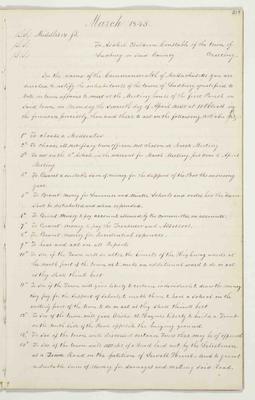 March 1848.
L.S. Middlesex ss.
L.S. To Asahel Goodnow Constable of the town of
L.S. Sudbury in said County Greeting.
In the name of the Commonwealth of Massachusetts you are
directed to notify the inhabitants of the town of Sudbury qualified to
vote in town affairs to meet at the Meeting house of the first Parish in
said town on Monday the day of April next at
the forenoon precisely, then and there to act on the following Articles viz
1st To choose a Moderator
2d To choose all necessary town officers not chosen at March Meeting
3d To act on the Article in the warrant for March Meeting put over to April
Meeting
4th To Grant a suitable sum of money for the support of the Poor the ensuing
year.
5th To Grant money for Summer and Winter Schools and order how the same
shall be distributed and when expended.
6th To Grant money to pay accounts allowed by the committee on accounts.
7th To Grant money to pay the Treasurer and Assessors.
8th To Grant money for incidental expenses.
9th To hear and act on all Reports
10th To see if the Town will alter the limits of the Highway wards at
the north part of the town so as to make an additional ward to do or act
as they shall think best
11th To see if the Town will give liberty to certain individuals to draw the money
they pay for the support of Schools to enable them to have a School in the
part of the town to do or act as they shall think best
12th To see if the town will give Haynes liberty to build a Tomb
on the north side of the Town opposite the burying ground.
13th To see if the town will discontinue certain Roads that may be
14th To see if the town will accept of a Road laid out by the Selectmen
as a Town Road on the petition of and to grant
a suitable sum of money for damages and making said Road.